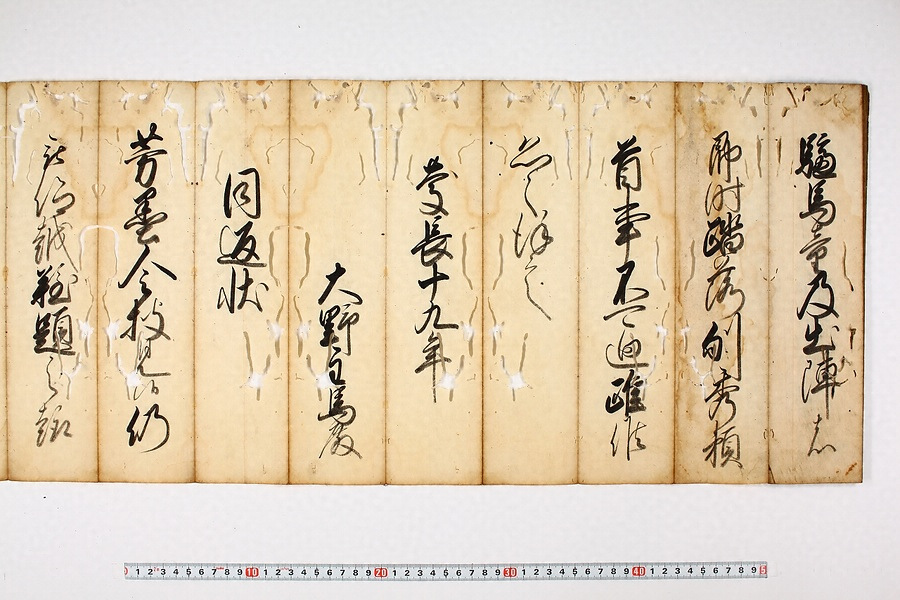 馬及出陣者
即時踏落刎秀頼
首事不可廻踵候
恐々謹言
慶長十九年
大野主馬殿
同返状
芳墨令披見候仍
被仰越難題之趣
1 2 3 4 5 6 7 8 9 10 1 2 3 4 5 6 7 8 9 20 1 2 3 4 5 6 7 8 9 30 1 2 3 4 5 6 7 8 9 40 1 2 3 4 5 6 7 8 9 5